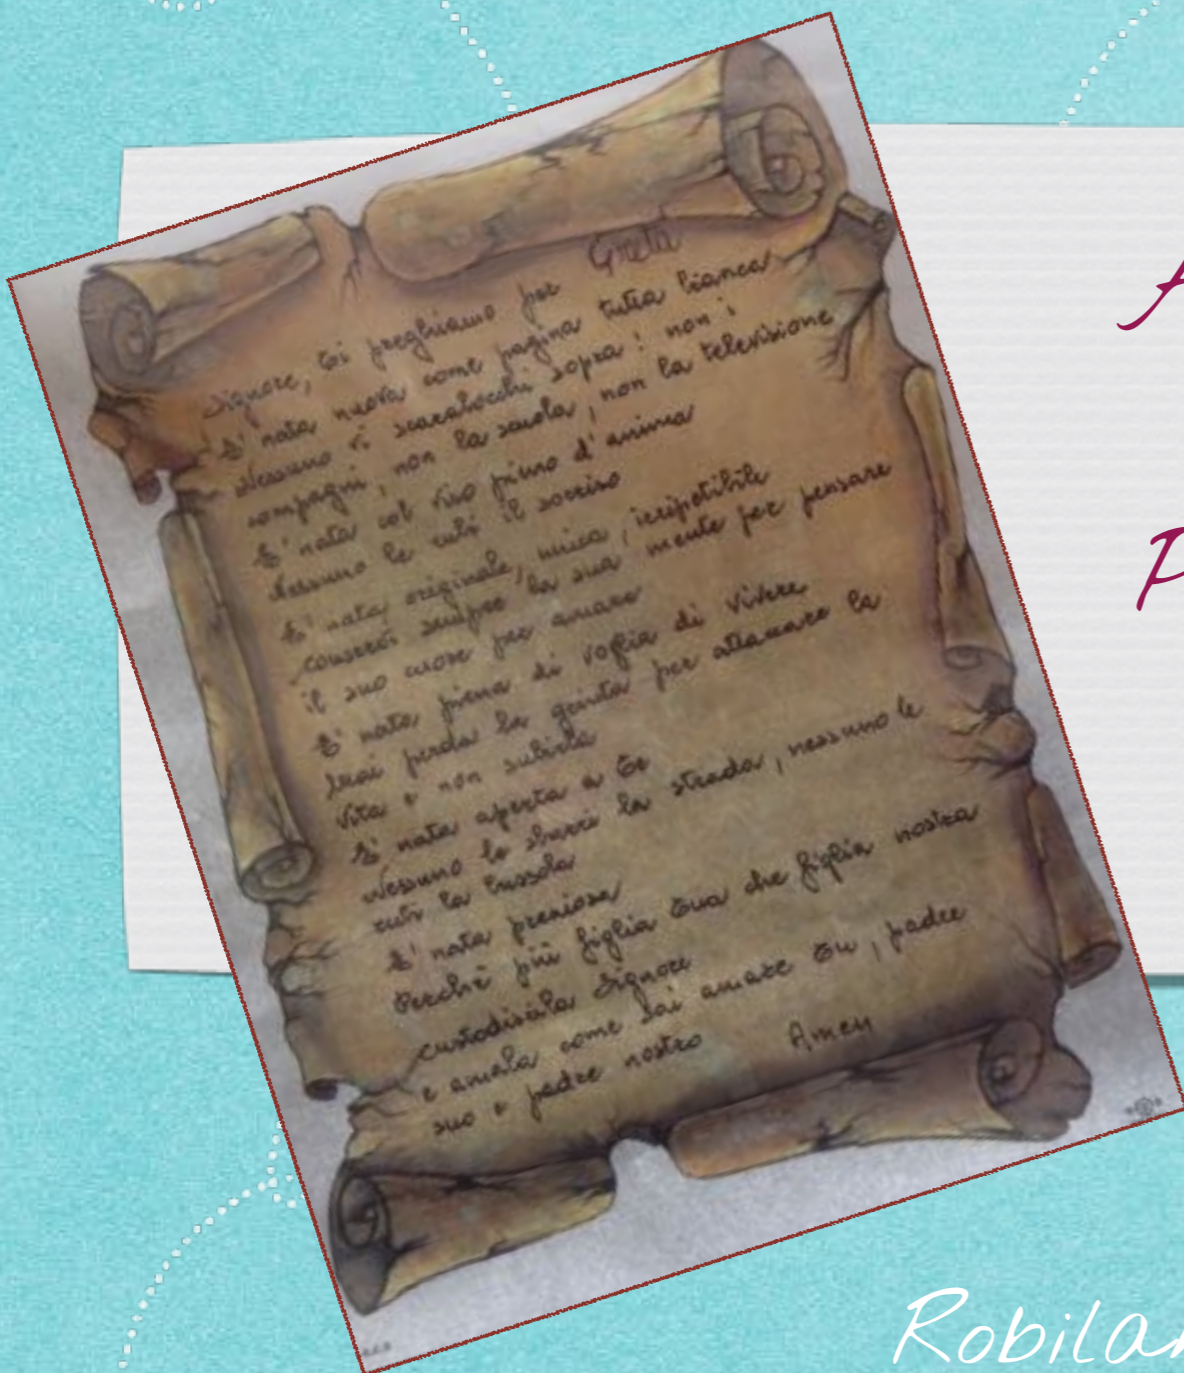 Greta
Signore, ti preghiamo per
E' nata nuova come pagina tutta bianca
Nessuno vi scarabocchi sopra: non i
compagni, non la scuola, non la televisione
E' nata col viso pieno d'anima
Nessuno le rubi il sorriso
E' nata originale, unica, irripetibile
conservi sempre la sua mente per pensare
il suo cuore per amare
E' nata piena di voglia di vivere
mai perda la grinta per attaccare la
vita e non subirla
E' nata aperta a te
Nessuno le sbarri la strada, nessuno le
rubi la bussola
E' nata preziosa
Perchè più figlia tua che figlia nostra
custodiscila Signore
e amala come sai amare tu, padre
suo e padre nostro Amen
A
P
Robilan